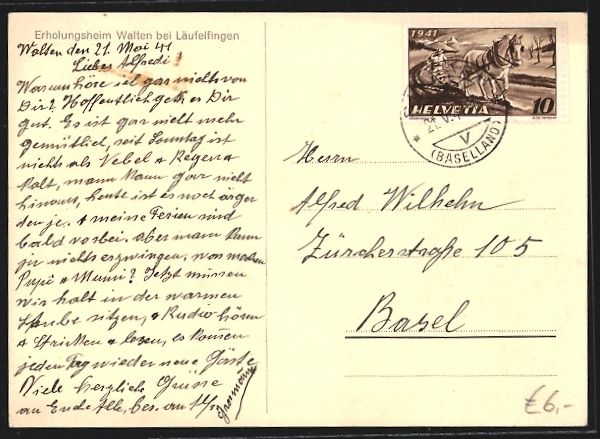 Erholungsheim Walten bei Läufelfingen
Walten den 21. Mai 41
Lieber Alfredi!
Warum höre ich gar nichts von
Dir? Hoffentlich geht es Dir
gut. Es ist gar nicht mehr
gemütlich, seit Sonntag ist
nichts als Nebel + Regen +
kalt, mann kann gar nicht
hinaus, heute ist es noch ärger
den je. + meine Ferien sind
bald vorbei. Aber man kann
ja nichts erzwingen. was machen
Papi + Mammi? Jetzt müssen
wir halt in der warmen
Stube sitzen, + Radio hören
+ Stricken + lesen, es kommen
jeden Tag wieder neue Gäste
Viele herzliche Grüsse
an Euch Alle, bes. an
Grosmama
1941
HELVETIA
10
21. V. 
V
(BASELLAND)
Herrn
Alfred Wilhelm
Zürcherstraße 105
Basel
€6,-